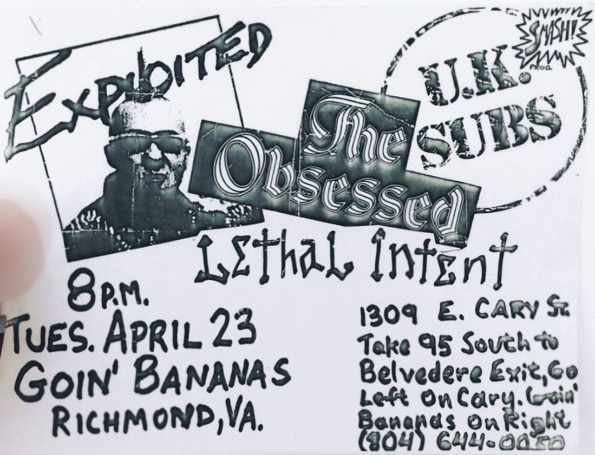 EXPLOITED
The Obsessed
U.K. SUBS
SMASH!
PROD.
LEthaL IntEnt
8 P.M.
TUES. APRIL 23
GOIN' BANANAS
RICHMOND, VA.
1309 E. CARY ST.
Take 95 South to
Belvedere Exit, Go
Left on Cary. Goin'
Bananas on Right
(804) 644-0050